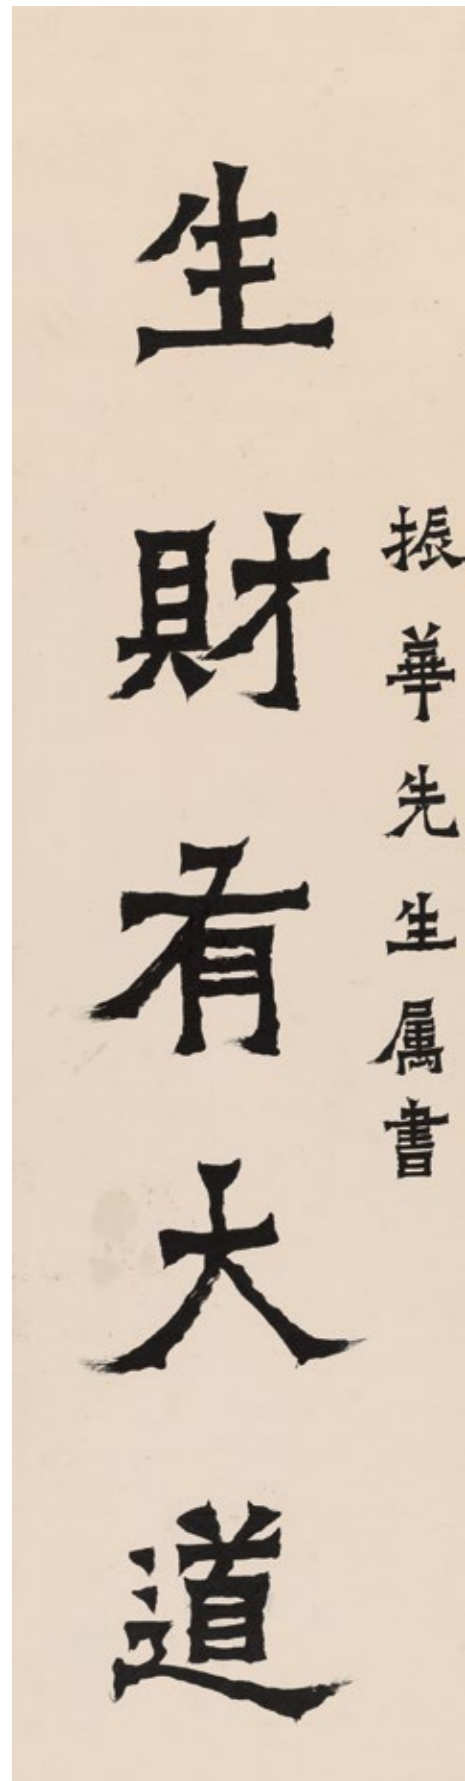 振華先生属書
生財有大道